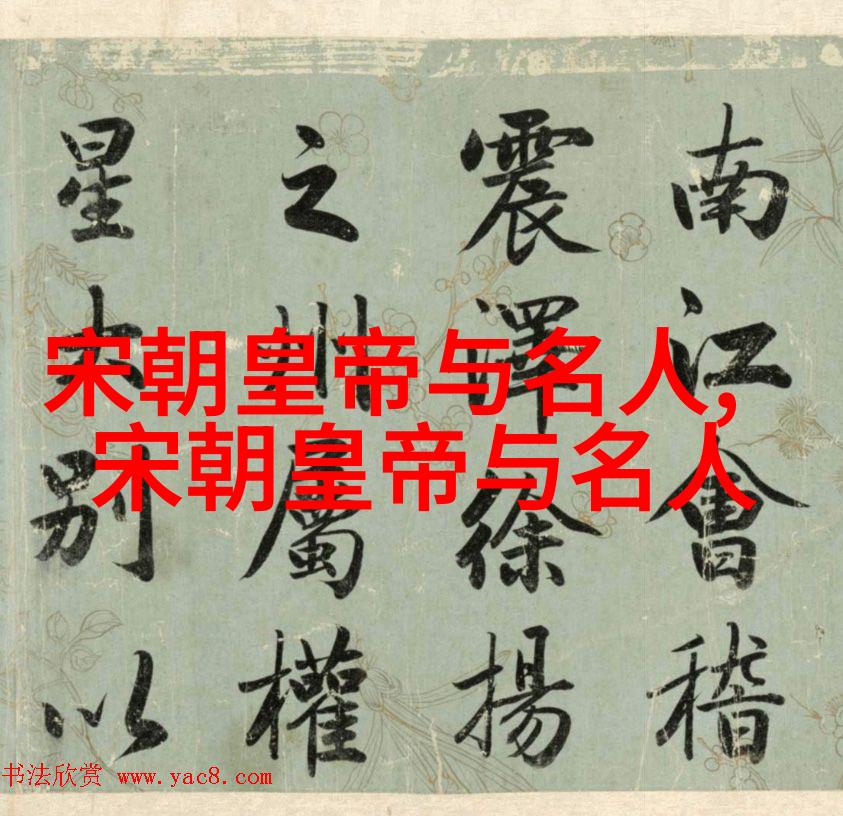 南江會稽
震澤徐揚
之州屬權
星别以
宋朝皇帝与名人,
宋朝皇帝与名人
书法欣赏 www.yac8.com